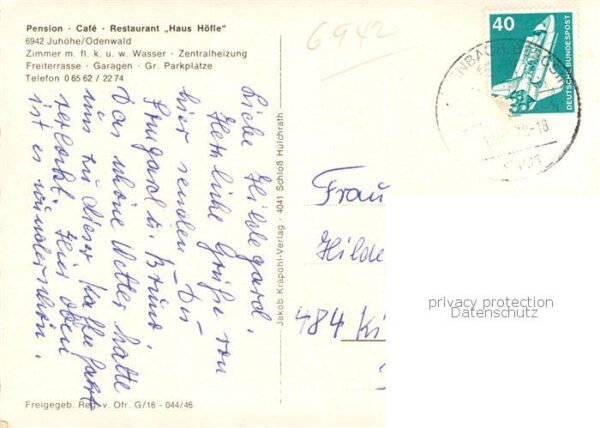 Pension · Café · Restaurant „Haus Höfle"
6942 Juhöhe/Odenwald
Zimmer m. fl. k. u. w. Wasser · Zentralheizung
Freiterrasse · Garagen · Gr. Parkplätze
Telefon 0 65 62 / 22 74
6942
40
DEUTSCHE BUNDESPOST
Liebe Hildegard,
Herzliche Grüße von
hier senden Dir
Irmgard u. Bruno
Das schöne Wetter hatte
uns zu dieser
verlockt. Hier oben
ist es wunderschön.
Jakob Krapohl-Verlag · 4041 Schloß Hülchrath
Frau
Hilde
484
privacy protection
Datenschutz
Freigegeb. Reg. v. Ofr. G/16 - 044/46